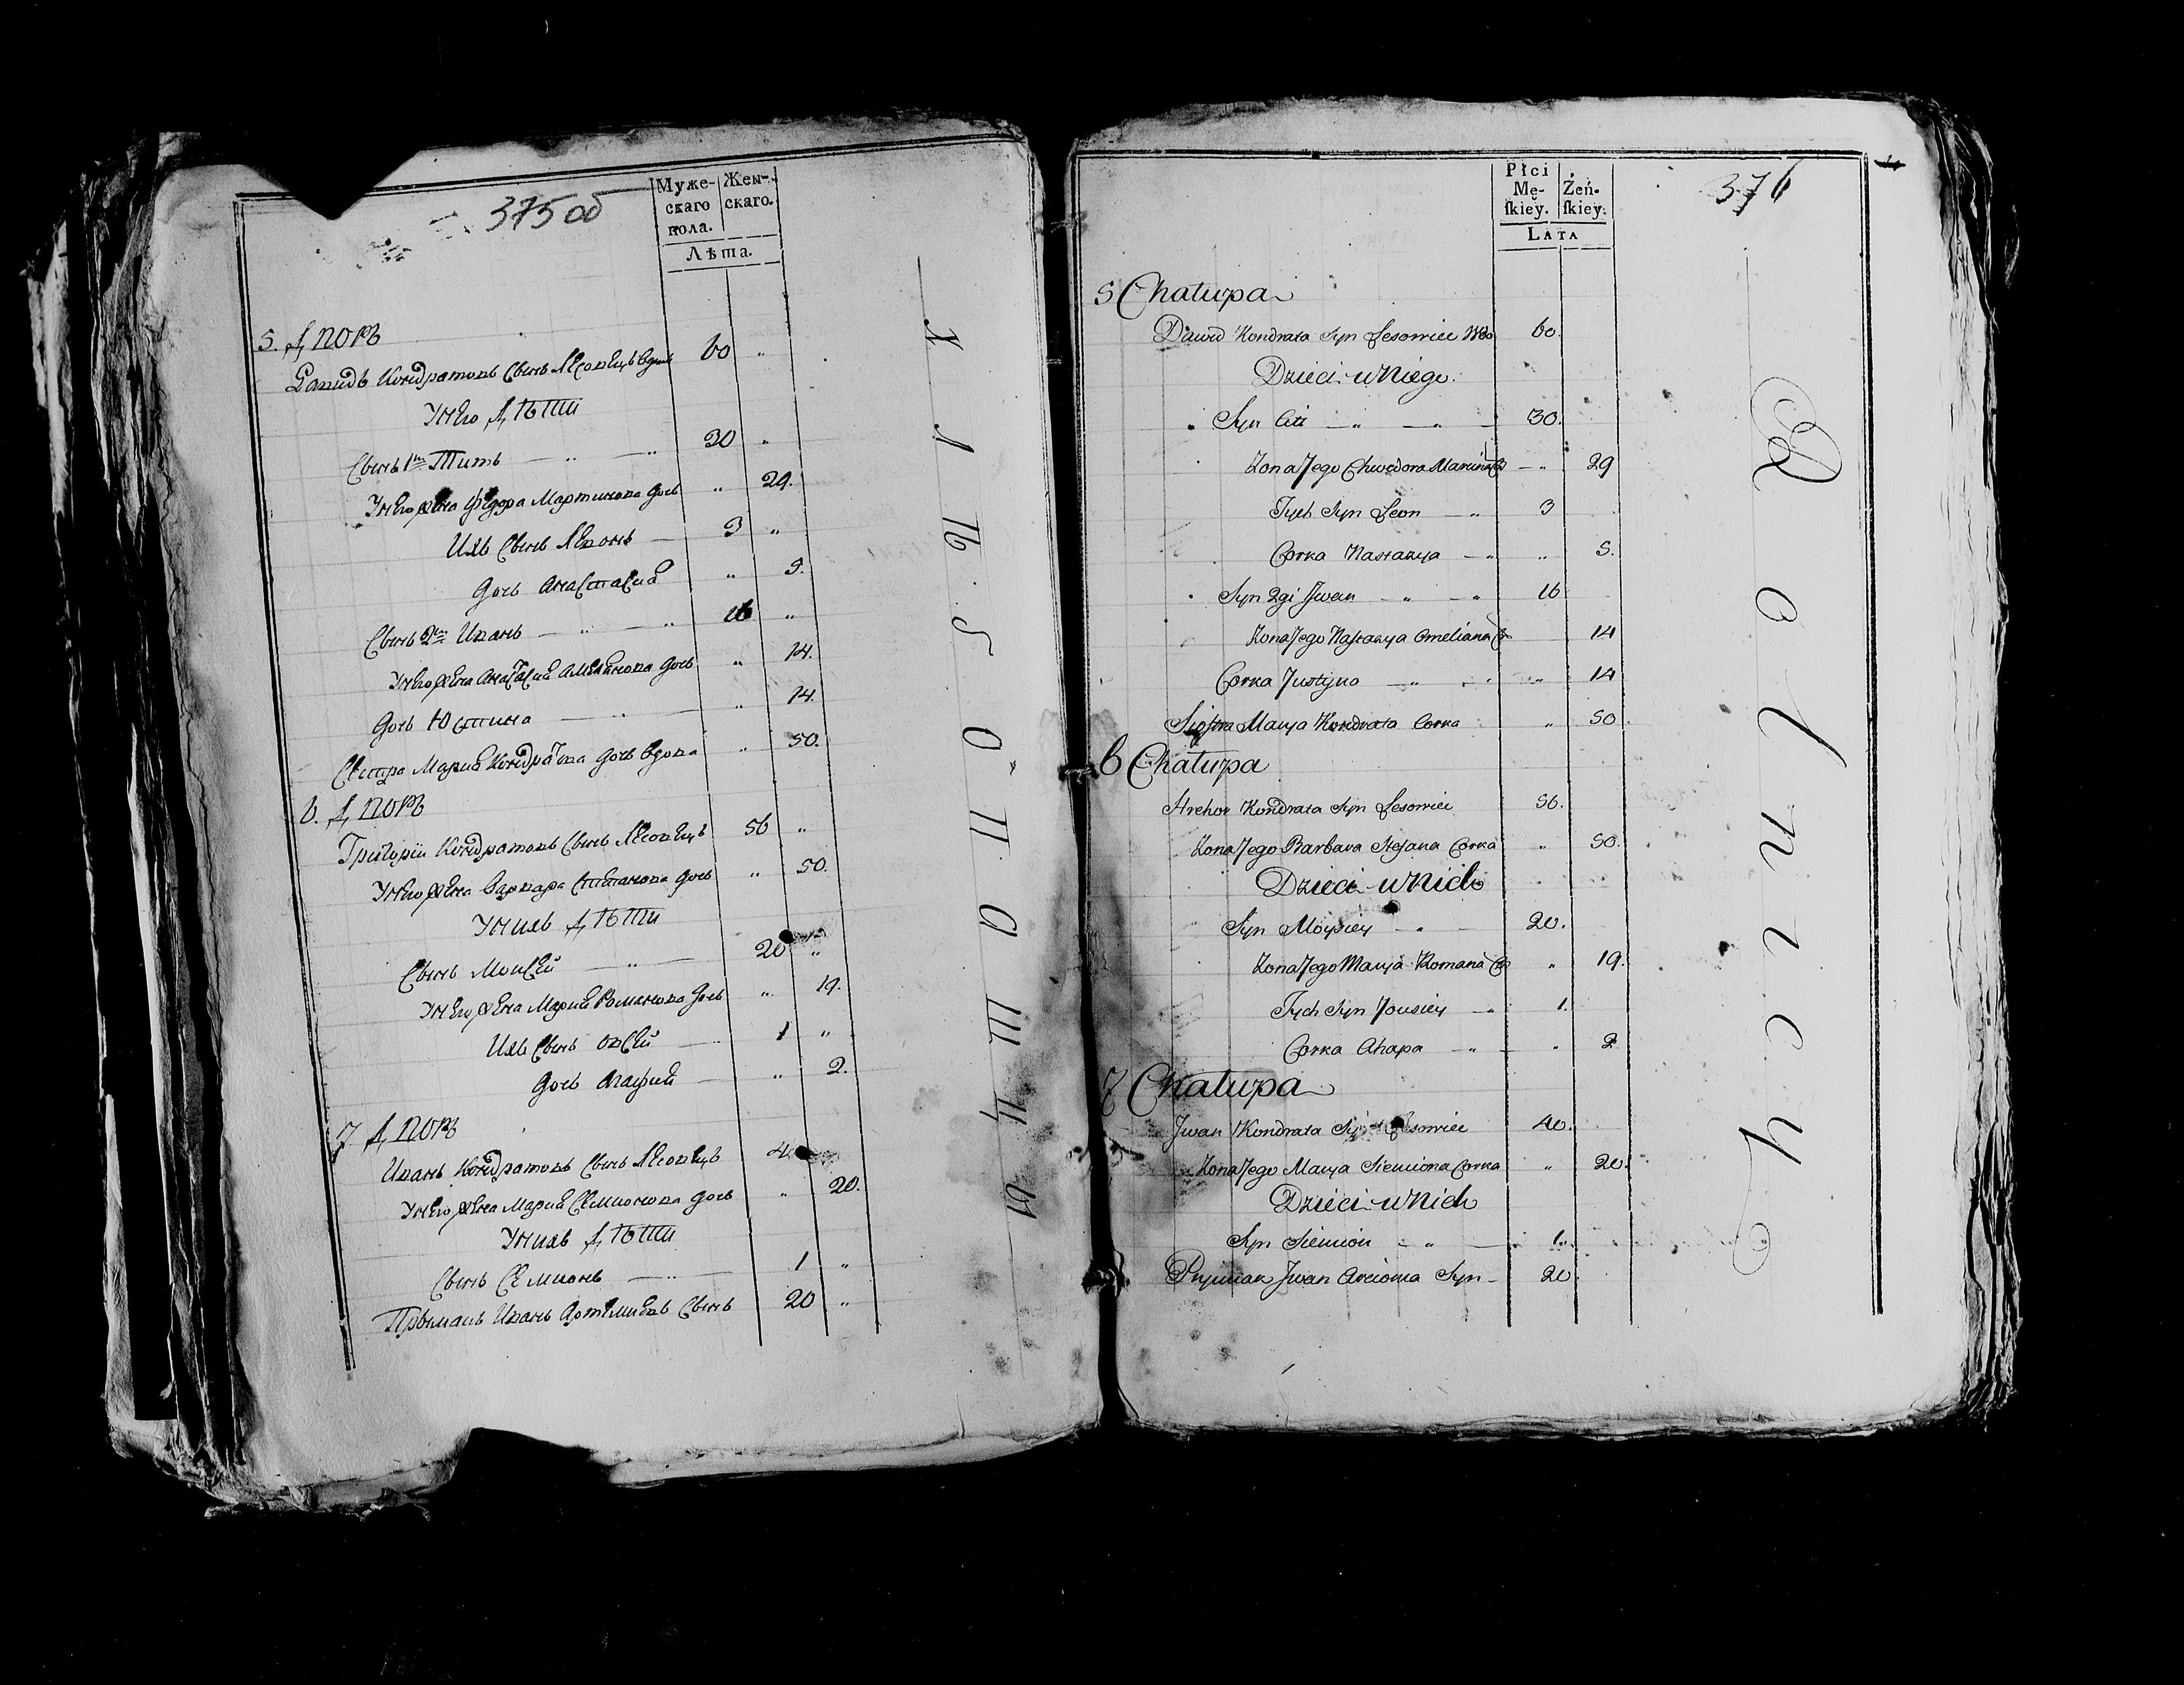 375 об
Муже-
скаго
пола.
Жен-
скаго.
Лѣта.
5. Дворъ
Давидъ Кондратовъ Сынъ Лѣсовецъ вдовъ 60 "
У Него Дѣти
Сынъ 1й Титъ — " — " 30 "
У Него жена Федора Мартинова дочь " 29.
Ихъ Сынъ Левонъ — 3 "
дочь Анастасия " 5.
Сынъ 2й Иванъ — " — " 16 "
У Него жена Анастасия Амелянова дочь " 14.
дочь Юстина — " — " 14.
Сестра Мария Кондратова дочь вдова " 50.
6. Дворъ
Григорий Кондратовъ Сынъ Лѣсовецъ 56 "
У Него жена Варвара Степанова дочь " 50.
У Нихъ Дѣти
Сынъ Моисей — " — 20 "
У Него жена Мария Романова дочь " 19.
Ихъ Сынъ Овсей — 1 "
дочь Агафия — " 2.
7 Дворъ
Иванъ Кондратовъ Сынъ Лѣсовецъ 4
У Него жена Мария Семионова дочь " 20.
У Нихъ Дѣти
Сынъ Семионъ — " — 1 "
Прыманъ Иванъ Артемиевъ Сынъ 20 "
376
Płci
Mę-
ſkiey.
Żeń-
ſkiey.
LATA
5 Chałupa
Dawid Kondrata Syn Lesowiec Wdo 60.
Dzieci u Niego.
Syn Cit — " — " — 30.
Zona Jego Chwedora Marcina C — " 29
Tych Syn Leon — " 3
Corka Nastazya — " " 5.
Syn 2gi Jwan — " — " 16
Zona Jego Nastazya Omeliana C 14
Corka Justyna — " " 14
Siostra Marya Kondrata Corka " 50
6 Chałupa
Hrehor Kondrata Syn Lesowiec 56.
Zona Jego Barbara Stefana Corka " 50.
Dzieci u Nich
Syn Moysiey — " — 20.
Zona Jego Marya Romana C " 19.
Tych Syn Jousiey — " 1.
Corka Ahapa — " — " 2
7 Chałupa
Jwan Kondrata Syn Lesowiec 40.
Zona Jego Marya Siemiona Corka " 20.
Dzieci u Nich
Syn Siemion — " — 1.
Prymak Jwan Arcioma Syn — 20.
R o l n i c y